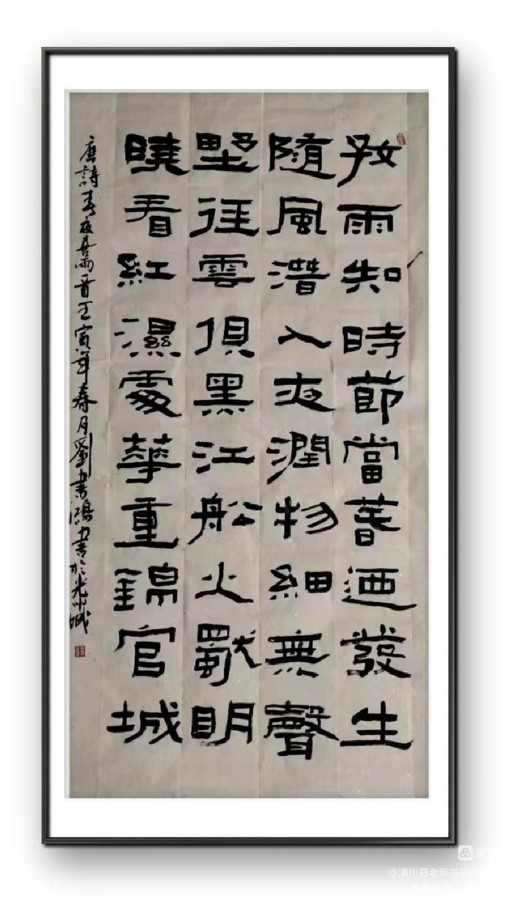 好雨知時節當萅迺發生
隨風潛入夜潤物細無聲
野徑雲俱黑江船火獨明
曉看紅濕處華重錦官城
唐詩春夜喜雨一首壬寅年春月劉書鴻書於光州城
@潢川县老年书